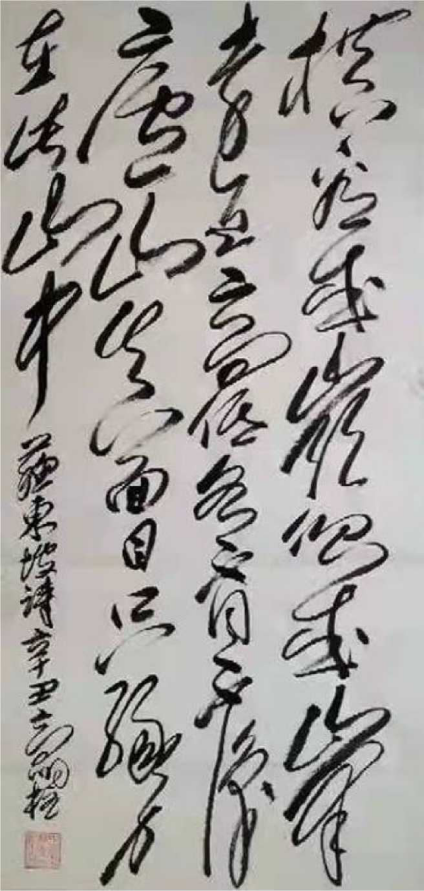 橫看成嶺側成峯
遠近高低各不同不識
廬山真面目只緣身
在此山中
蘇東坡詩辛丑高柱